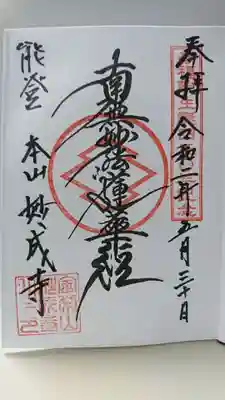 奉拝 令和二年五月三十日
南無妙法蓮華経
能登 本山 妙成寺